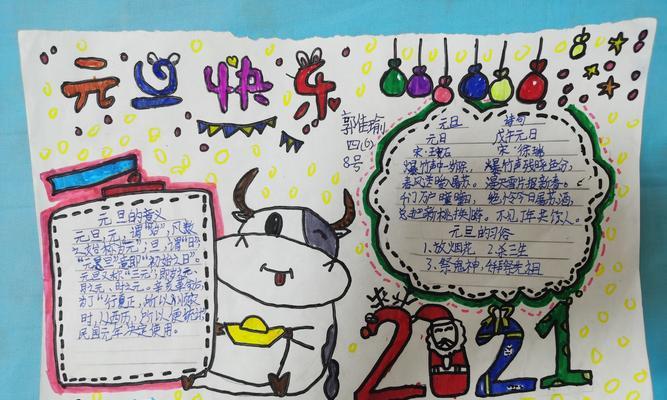 元旦快乐
郭佳瑜
四(6)
8号
元旦的意义
元旦,元,谓"始",凡数
之始称为"元";旦,谓"日";
"元旦"意即"初始之日"。
元旦又称"三元",即岁之
元、月之元、时之元。
为了"行夏正,所以
时,从西历,所以便统计
民国元年决定使用。
元旦 诗句
元旦 戊午元日
宋·王安石 宋·
爆竹声中一岁除, 爆竹声残
春风送暖入屠苏。
千门万户曈曈日,
总把新桃换旧符。
元旦的习俗
1.放烟花 2.杀三生
3.祭鬼神,拜祭先祖
2021